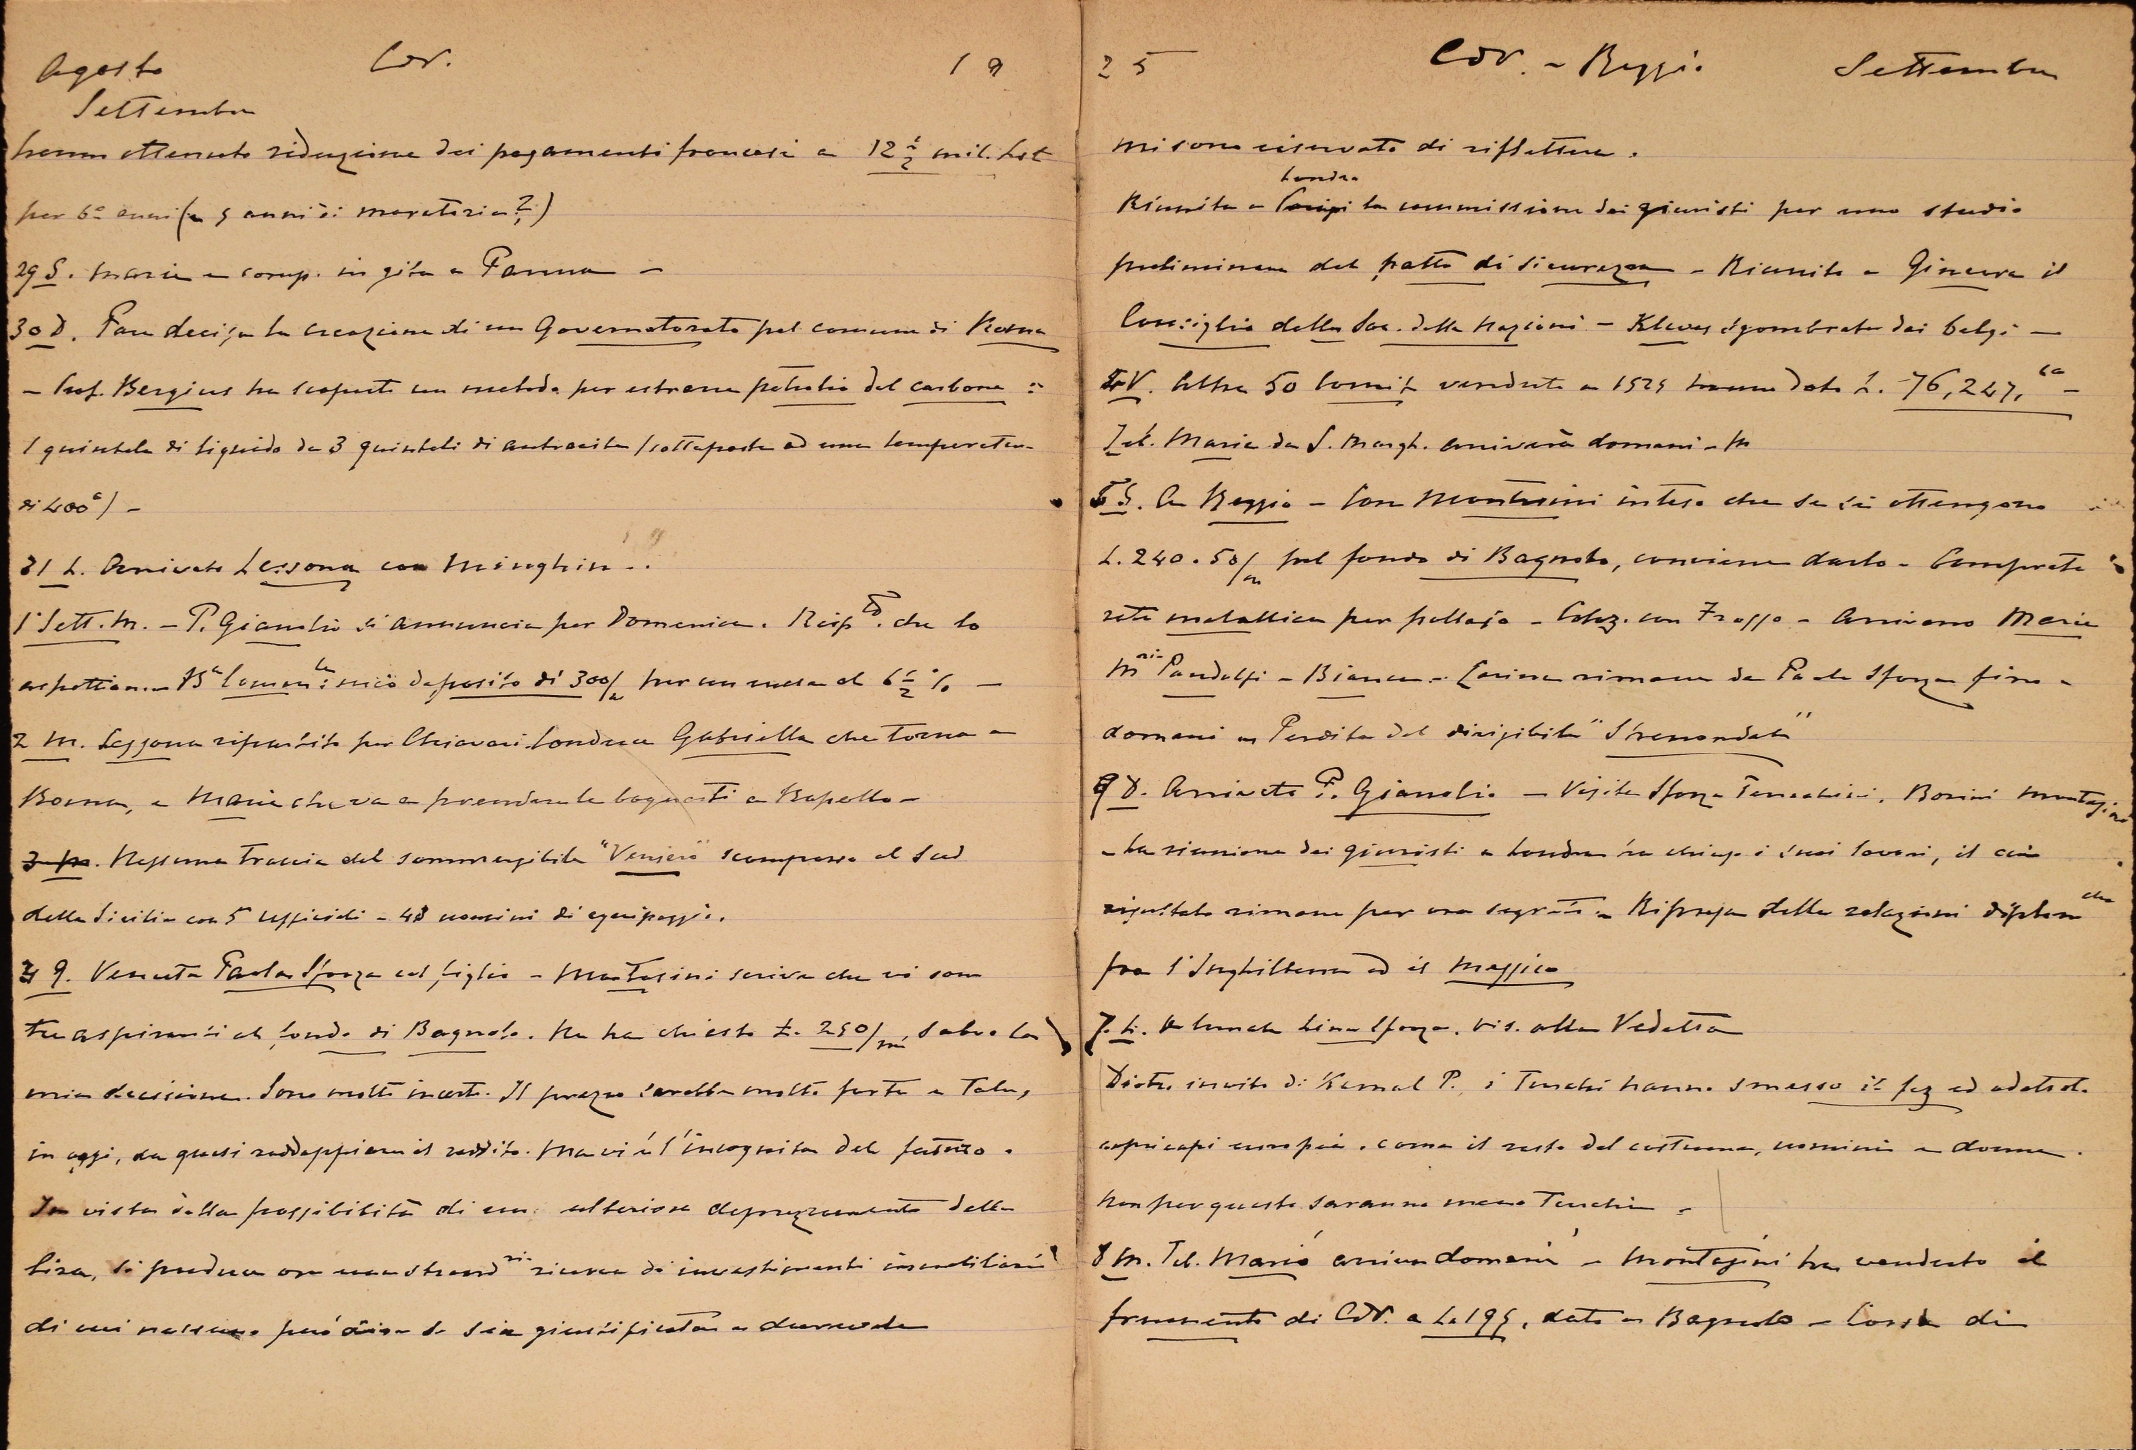 Agosto CdV. 19
Settembre
hanno ottenuto riduzione dei pagamenti francesi a 12 ½ mil. Lst
per 60 anni (e 5 anni di moratoria?)
29 S. Maria e comp. in gita a Parma –
30 D. decisa la creazione di un Governatorato pel comune di Roma
– Prof. Bergius ha scoperto un metodo per estrarre petrolio dal carbone :
1 quintale di liquido da 3 quintali di antracite (sottoposta ad una temperatura
di 400°) –
31 L. Arrivato Lessona con
1° Sett. M. – P. Gianolio si annuncia per Domenica. Risp. che lo
aspettiamo – Bca Comm.le : mio deposito di 300/m per un mese al 6 ½ % –
2 M. Lessona ripartito per Chiavari conduce Gabriella che torna a
Roma, e Maria che va a prendere le bagnanti a Rapallo –
3 M. Nessuna traccia del sommergibile "Veniero" scomparso al Sud
della Sicilia con 5 ufficiali e 43 uomini di equipaggio.
3 G. Venuta Paola Sforza col figlio – Montesini scrive che vi sono
tre aspiranti al fondo di Bagnolo. Ne ha chiesto L. 250/m, salvo la
mia decisione. Sono molto incerto. Il prezzo sarebbe molto forte e tale,
in oggi, da quasi raddoppiare il reddito. Ma vi è l'incognita del futuro.
In vista della possibilità di un ulteriore deprezzamento della
lira, si produce ora una straordria ricerca di investimenti immobiliari
di cui nessuno può dire se sia giustificata e durevole
25 CdV. – Reggio Settembre
mi sono riservato di riflettere.
Londra
Riunita a Parigi la commissione dei giuristi per uno studio
preliminare del patto di sicurezza – Riunito a Ginevra il
Consiglio della Soc. delle Nazioni – Kleves sgombrata dai belgi –
4 V. Altre 50 Comit vendute a 1525 hanno dato L. 76,247,
Tel. Maria da S. Margh. arriverà domani –
5 S. A Reggio – Con Montesini inteso che se si ottengono
L. 240.50/m pel fondo di Bagnolo, conviene darlo – Comprata
rete metallica per pollaio – Colaz. con – Arrivano Maria
Mria Pandolfi – Bianca – rimane da Paola Sforza fino a
domani – Perdita del dirigibile "Shenandoah"
6 D. Arrivato P. Gianolio – Visite Sforza Bonini Montagnini
– La riunione dei giuristi a Londra ha chiuso i suoi lavori, il cui
risultato rimane per ora segreto – Ripresa delle relazioni diplomche
fra l'Inghilterra ed il Messico
7. L. A lunch Lina Sforza. Vis. alla Vedetta
Dietro invito di Kemal P. i Turchi hanno smesso il fez ed adottato
copricapi europei, come il resto del costume, uomini e donne.
Non per questo saranno meno Turchi –
8 M. Tel. Mario arriva domani – Montesini ha venduto il
frumento di CdV. a L. 195, dato a Bagnolo – Corsa di